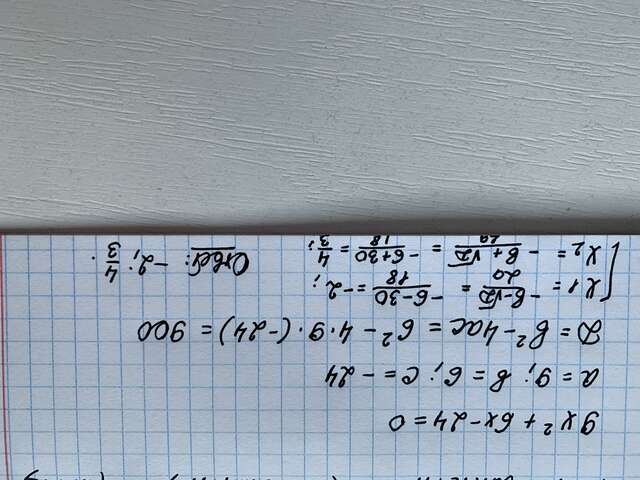 9x² + 6x - 24 = 0
a = 9; b = 6; c = - 24
D = b² - 4ac = 6² - 4·9·(-24) = 900
x1 = \frac{-b-\sqrt{D}}{2a} = \frac{-6-30}{18} = -2;
x2 = \frac{-b+\sqrt{D}}{2a} = \frac{-6+30}{18} = \frac{4}{3}; Ответ: -2; \frac{4}{3}.